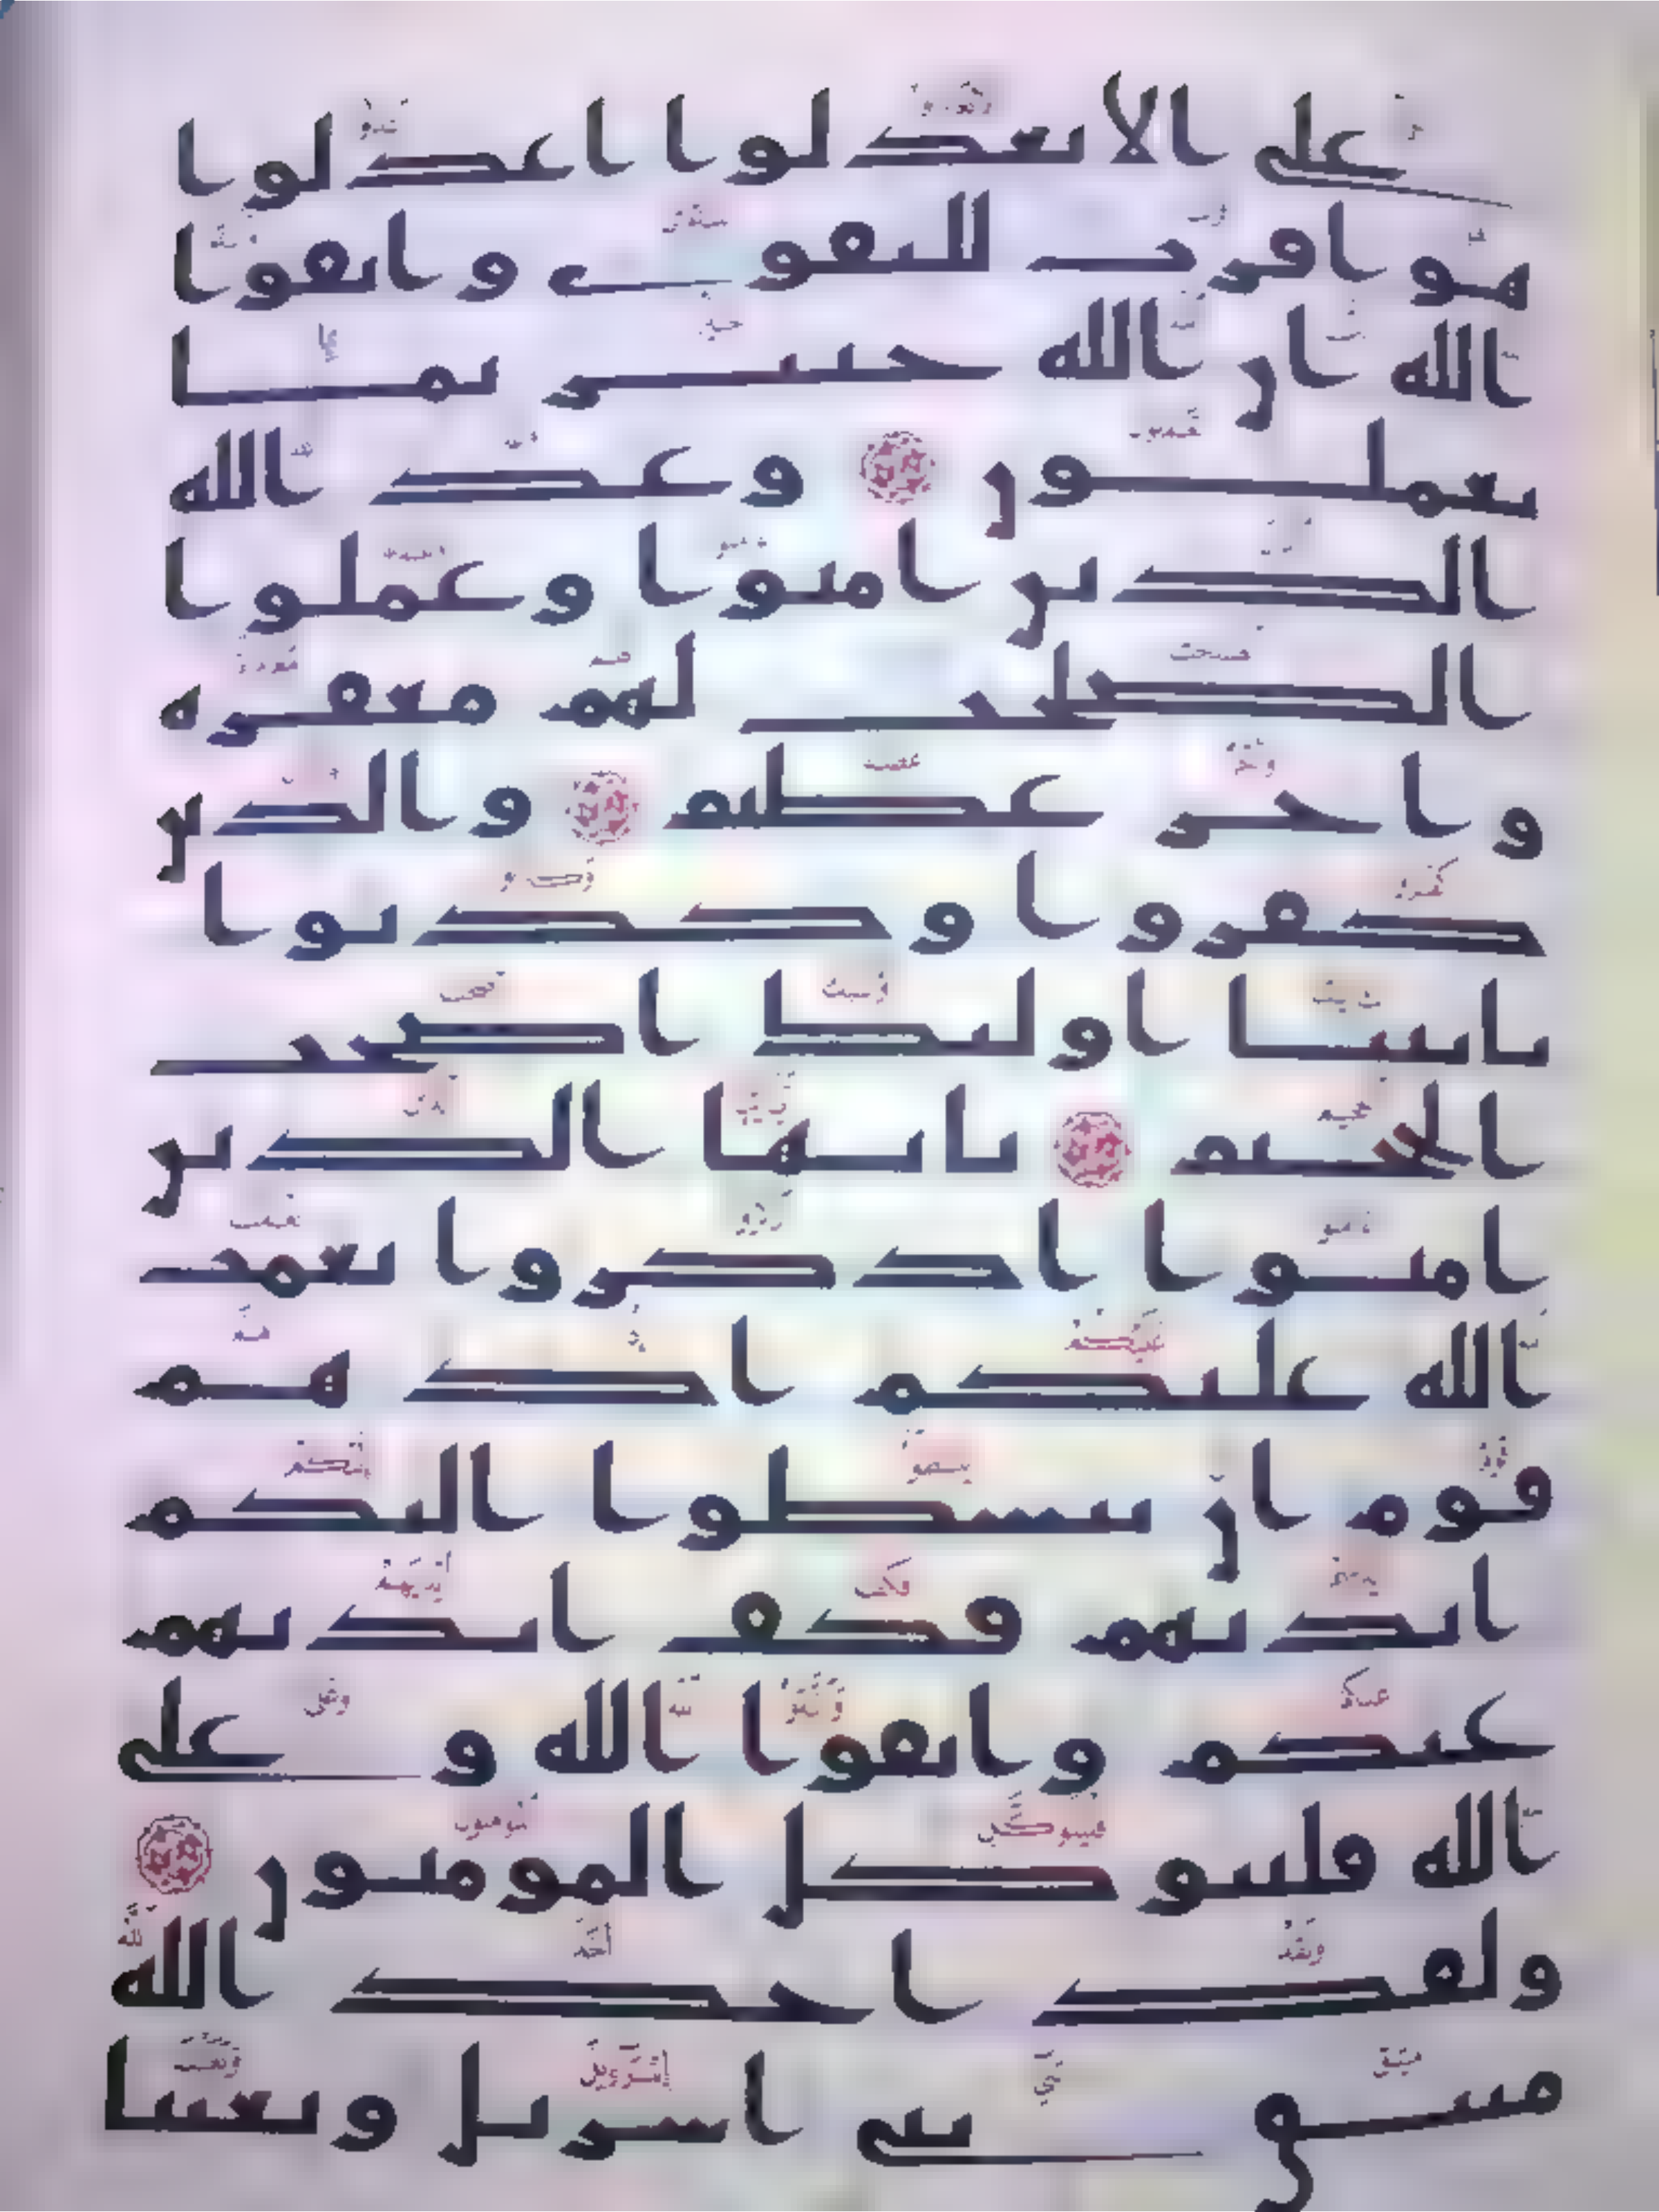 على الا تعدلوا اعدلوا
هو اقرب للتقوى واتقوا
الله ان الله خبير بما
تعملون وعد الله
الذين امنوا وعملوا
الصلحت لهم مغفرة
واجر عظيم والذين
كفروا وكذبوا
بايتنا اوليك اصحب
الجحيم يايها الذين
امنوا اذكروا نعمت
الله عليكم اذ هم
قوم ان يبسطوا اليكم
ايديهم فكف ايديهم
عنكم واتقوا الله وعلى
الله فليتوكل المومنون
ولقد اخذ الله
ميثق بني اسريل وبعثنا